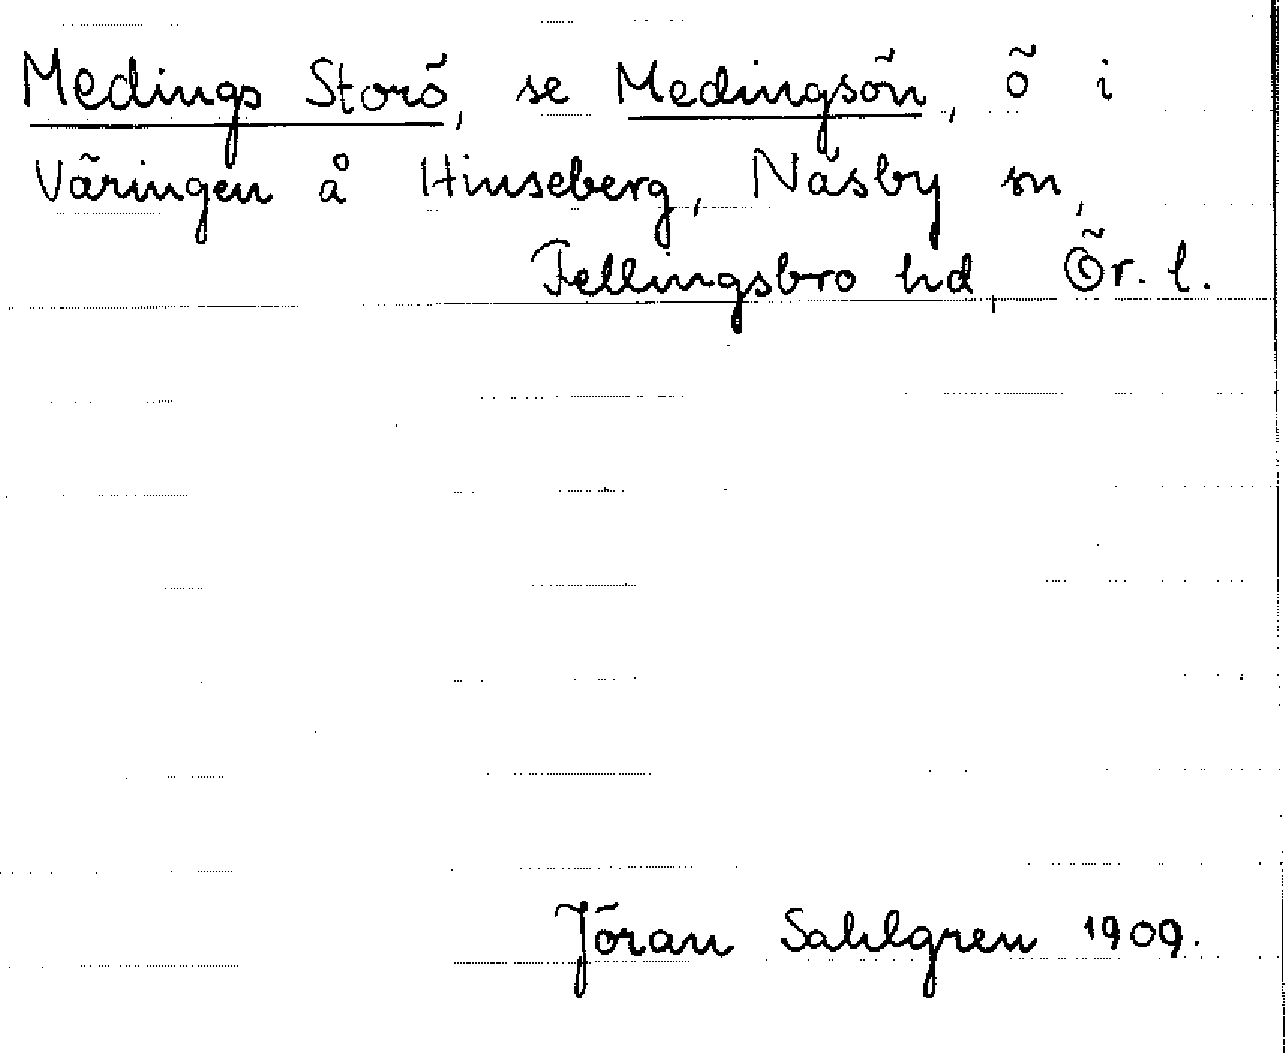 Medings Storö, se Medingsön, ö i
Väringen å Hinseberg, Näsby sn,
Fellingsbro hd, Ör. l.
Jöran Sahlgren 1909.